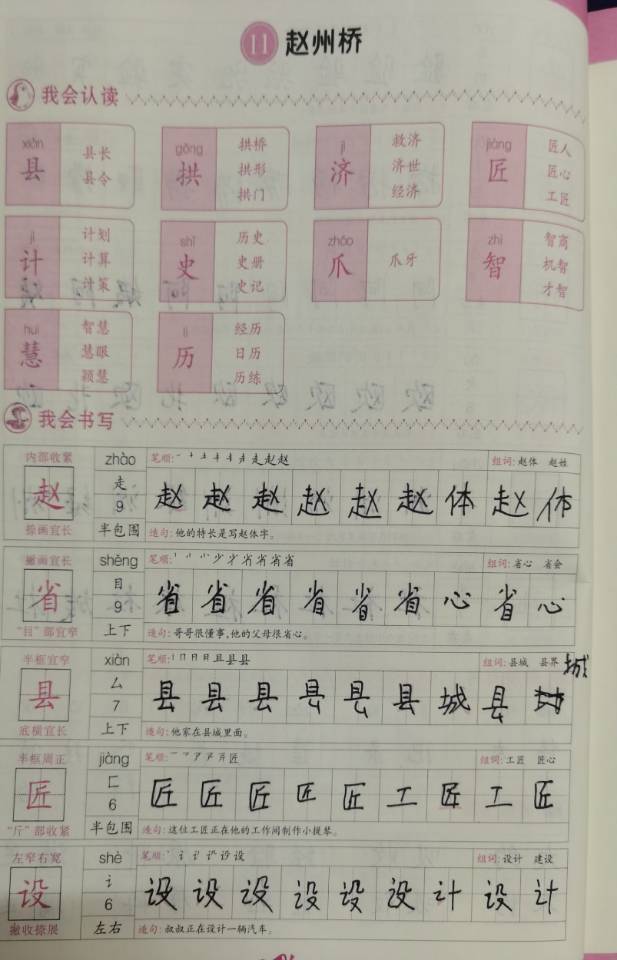 11 赵州桥
我会认读
xiàn 县 县长 县令
gǒng 拱 拱桥 拱形 拱门
jì 济 救济 济世 经济
jiàng 匠 匠人 匠心 工匠
jì 计 计划 计算 计策
shǐ 史 历史 史册 史记
zhǎo 爪 爪牙
zhì 智 智商 机智 才智
huì 慧 智慧 慧眼 颖慧
lì 历 经历 日历 历练
我会书写
内部收紧 zhào 笔顺: 走 赵 赵 组词: 赵体 赵姓
赵 走 9 赵 赵 赵 赵 赵 赵 体 赵 体
捺画宜长 半包围 造句: 他的特长是写赵体字。
撇画宜长 shěng 笔顺: 少 省 省 组词: 省心 省会
省 目 9 省 省 省 省 省 省 心 省 心
“目”部宜窄 上下 造句: 哥哥很懂事,他的父母很省心。
半框宜窄 xiàn 笔顺: 且 县 县 组词: 县城 县界
县 厶 7 县 县 县 县 县 县 城 县 城
底横宜长 上下 造句: 他家在县城里面。
半框周正 jiàng 笔顺: 匠 组词: 工匠 匠心
匠 匚 6 匠 匠 匠 匠 匠 工 匠 工 匠
“斤”部收紧 半包围 造句: 这位工匠正在他的工作间制作小提琴。
左窄右宽 shè 笔顺: 设 组词: 设计 建设
设 讠 6 设 设 设 设 设 设 计 设 计
撇收捺展 左右 造句: 叔叔正在设计一辆汽车。